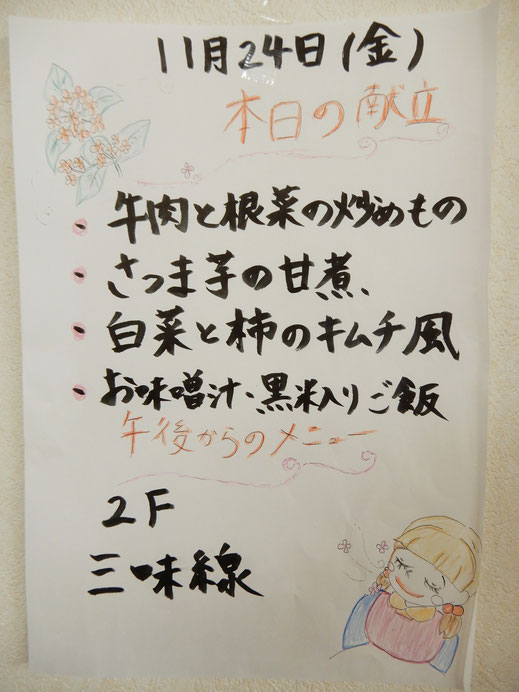 11月24日(金)
本日の献立
・牛肉と根菜の炒めもの
・さつま芋の甘煮、
・白菜と柿のキムチ風
・お味噌汁、黒米入りご飯
午後からのメニュー
2F
三味線